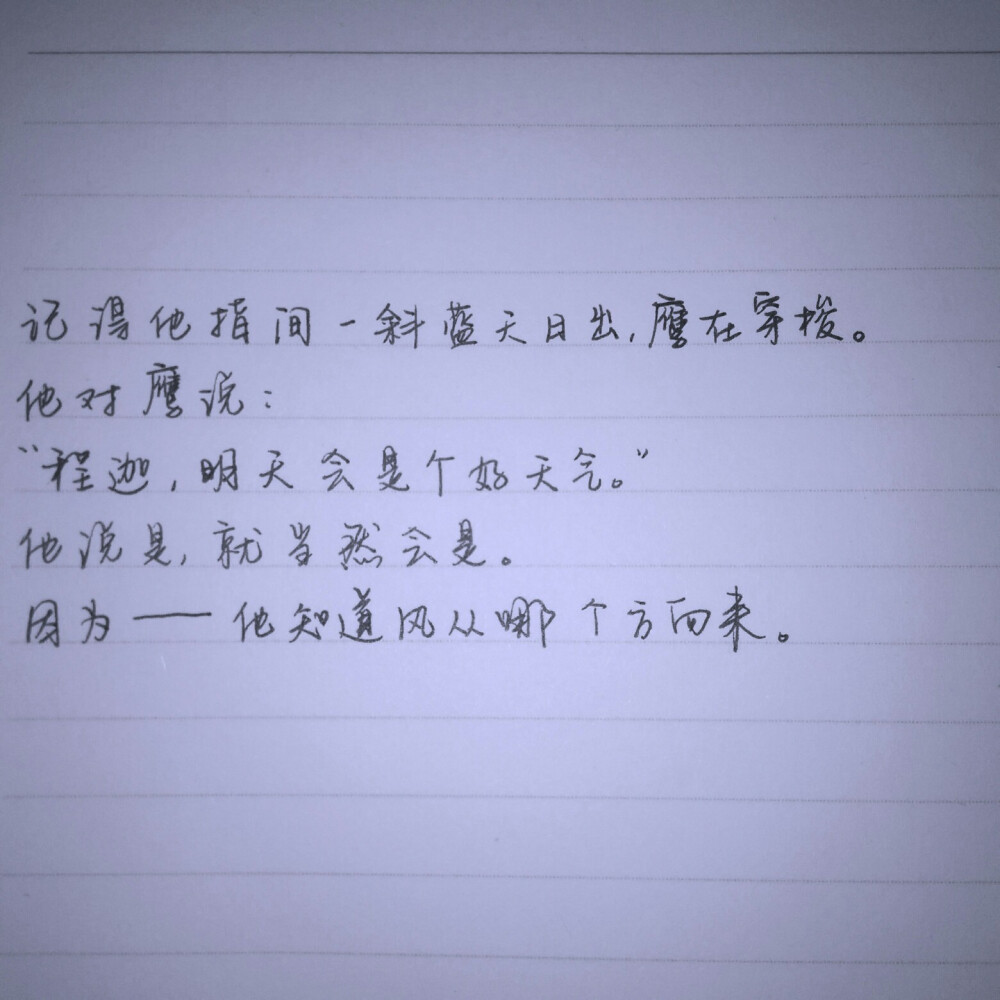 记得他指间一斜蓝天日出,鹰在穿梭。
他对鹰说:
“程迦,明天会是个好天气。”
他说是,就当然会是。
因为——他知道风从哪个方向来。